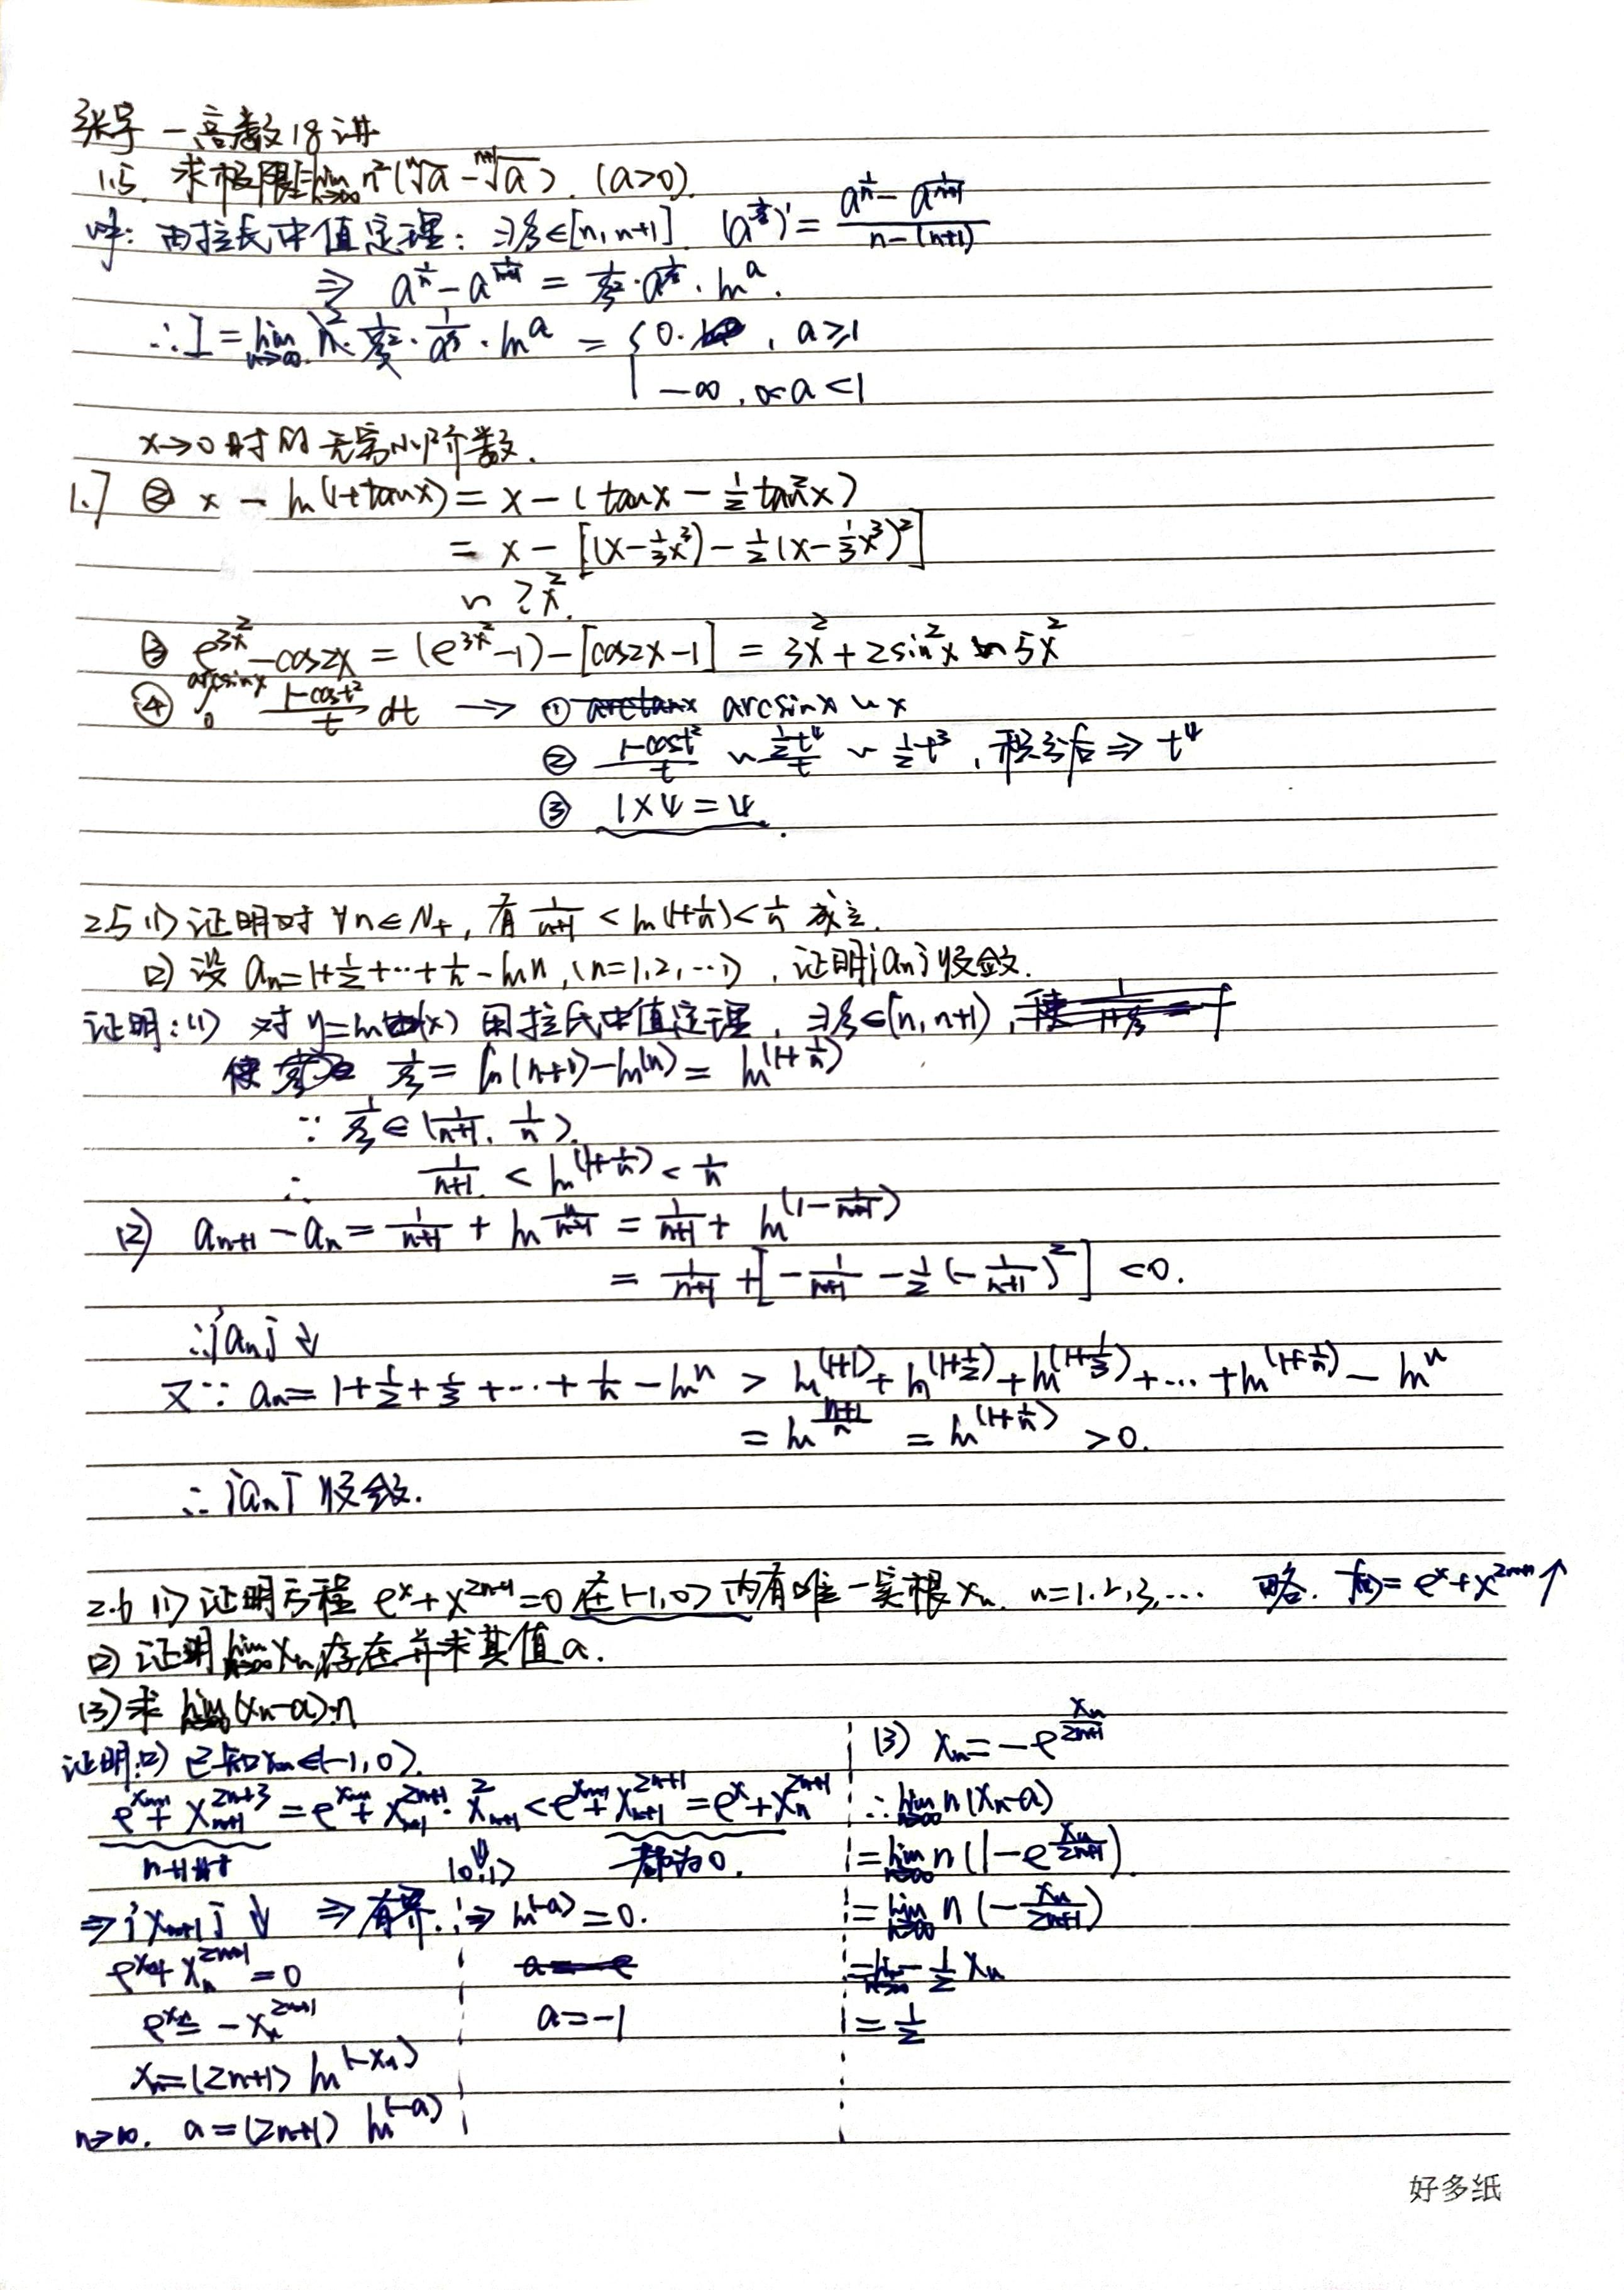 张宇—高数18讲
1.5. 求极限 lim n→∞ n²(ⁿ√a - ⁿ⁺¹√a). (a>0).
解: 由拉氏中值定理: ∃ξ∈[n, n+1]. (a^(1/ξ))' = (a^(1/n) - a^(1/(n+1)))/(n-(n+1))
⇒ a^(1/n) - a^(1/(n+1)) = 1/ξ² · a^(1/ξ) · ln a.
∴ I = lim n→∞ n² · 1/ξ² · 1/a^ξ · ln a = { 0. , a≥1
-∞, 0<a<1
x→0时的无穷小阶数.
1.7 ② x - ln(1+tanx) = x - (tanx - 1/2 tan²x)
= x - [(x - 1/3 x³) - 1/2 (x - 1/3 x³)²]
~ ? x².
③ e^(3x²) - cos2x = (e^(3x²) - 1) - [cos2x - 1] = 3x² + 2sin²x ~ 5x²
④ ∫₀^(arcsinx) (1-cost²)/t dt → ① arctanx arcsinx ~ x
② (1-cost²)/t ~ (1/2 t⁴)/t ~ 1/2 t³, 积分后 ⇒ t⁴
③ 1×4=4.
2.5 (1) 证明对 ∀n∈N₊, 有 1/(n+1) < ln(1+1/n) < 1/n 成立.
(2) 设 aₙ = 1+1/2+…+1/n - ln n, (n=1,2,…), 证明{aₙ}收敛.
证明: (1) 对 y=ln(x) 用拉氏中值定理, ∃ξ∈(n, n+1), 使
使 1/ξ = ln(n+1) - ln(n) = ln(1+1/n)
∵ 1/ξ ∈ (1/(n+1), 1/n).
∴ 1/(n+1) < ln(1+1/n) < 1/n
(2) aₙ₊₁ - aₙ = 1/(n+1) + ln n/(n+1) = 1/(n+1) + ln(1 - 1/(n+1))
= 1/(n+1) + [-1/(n+1) - 1/2 (-1/(n+1))²] < 0.
∴{aₙ}↓
又∵ aₙ = 1+1/2+1/3+…+1/n - ln n > ln(1+1) + ln(1+1/2) + ln(1+1/3) + … + ln(1+1/n) - ln n
= ln (n+1)/n = ln(1+1/n) > 0.
∴{aₙ}收敛.
2.6 (1) 证明方程 eˣ + x²ⁿ⁺¹ = 0 在(-1,0)内有唯一实根 xₙ. n=1,2,3,… 略. f(x) = eˣ + x²ⁿ⁺¹ ↑
(2) 证明 lim n→∞ xₙ 存在并求其值a.
(3) 求 lim n→∞ (xₙ-a)·n
证明: (2) 已知xₙ∈(-1,0).
e^(xₙ₊₁) + xₙ₊₁^(2n+3) = e^(xₙ₊₁) + xₙ₊₁^(2n+1) · xₙ₊₁² < e^(xₙ₊₁) + xₙ₊₁^(2n+1) = eˣ + xₙ^(2n+1)
n+1 (0,1) 都为0.
⇒ {xₙ₊₁}↓ ⇒ 有界.
e^(xₙ) + xₙ^(2n+1) = 0
e^(xₙ) = -xₙ^(2n+1)
xₙ = (2n+1) ln(-xₙ)
n→∞. a = (2n+1) ln(-a)
⇒ ln(-a) = 0.
a = -e
a = -1
(3) xₙ = -e^(xₙ/(2n+1))
∴ lim n→∞ n(xₙ-a)
= lim n→∞ n(1-e^(xₙ/(2n+1))).
= lim n→∞ n(-xₙ/(2n+1))
= lim n→∞ -1/2 xₙ
= 1/2
好多纸